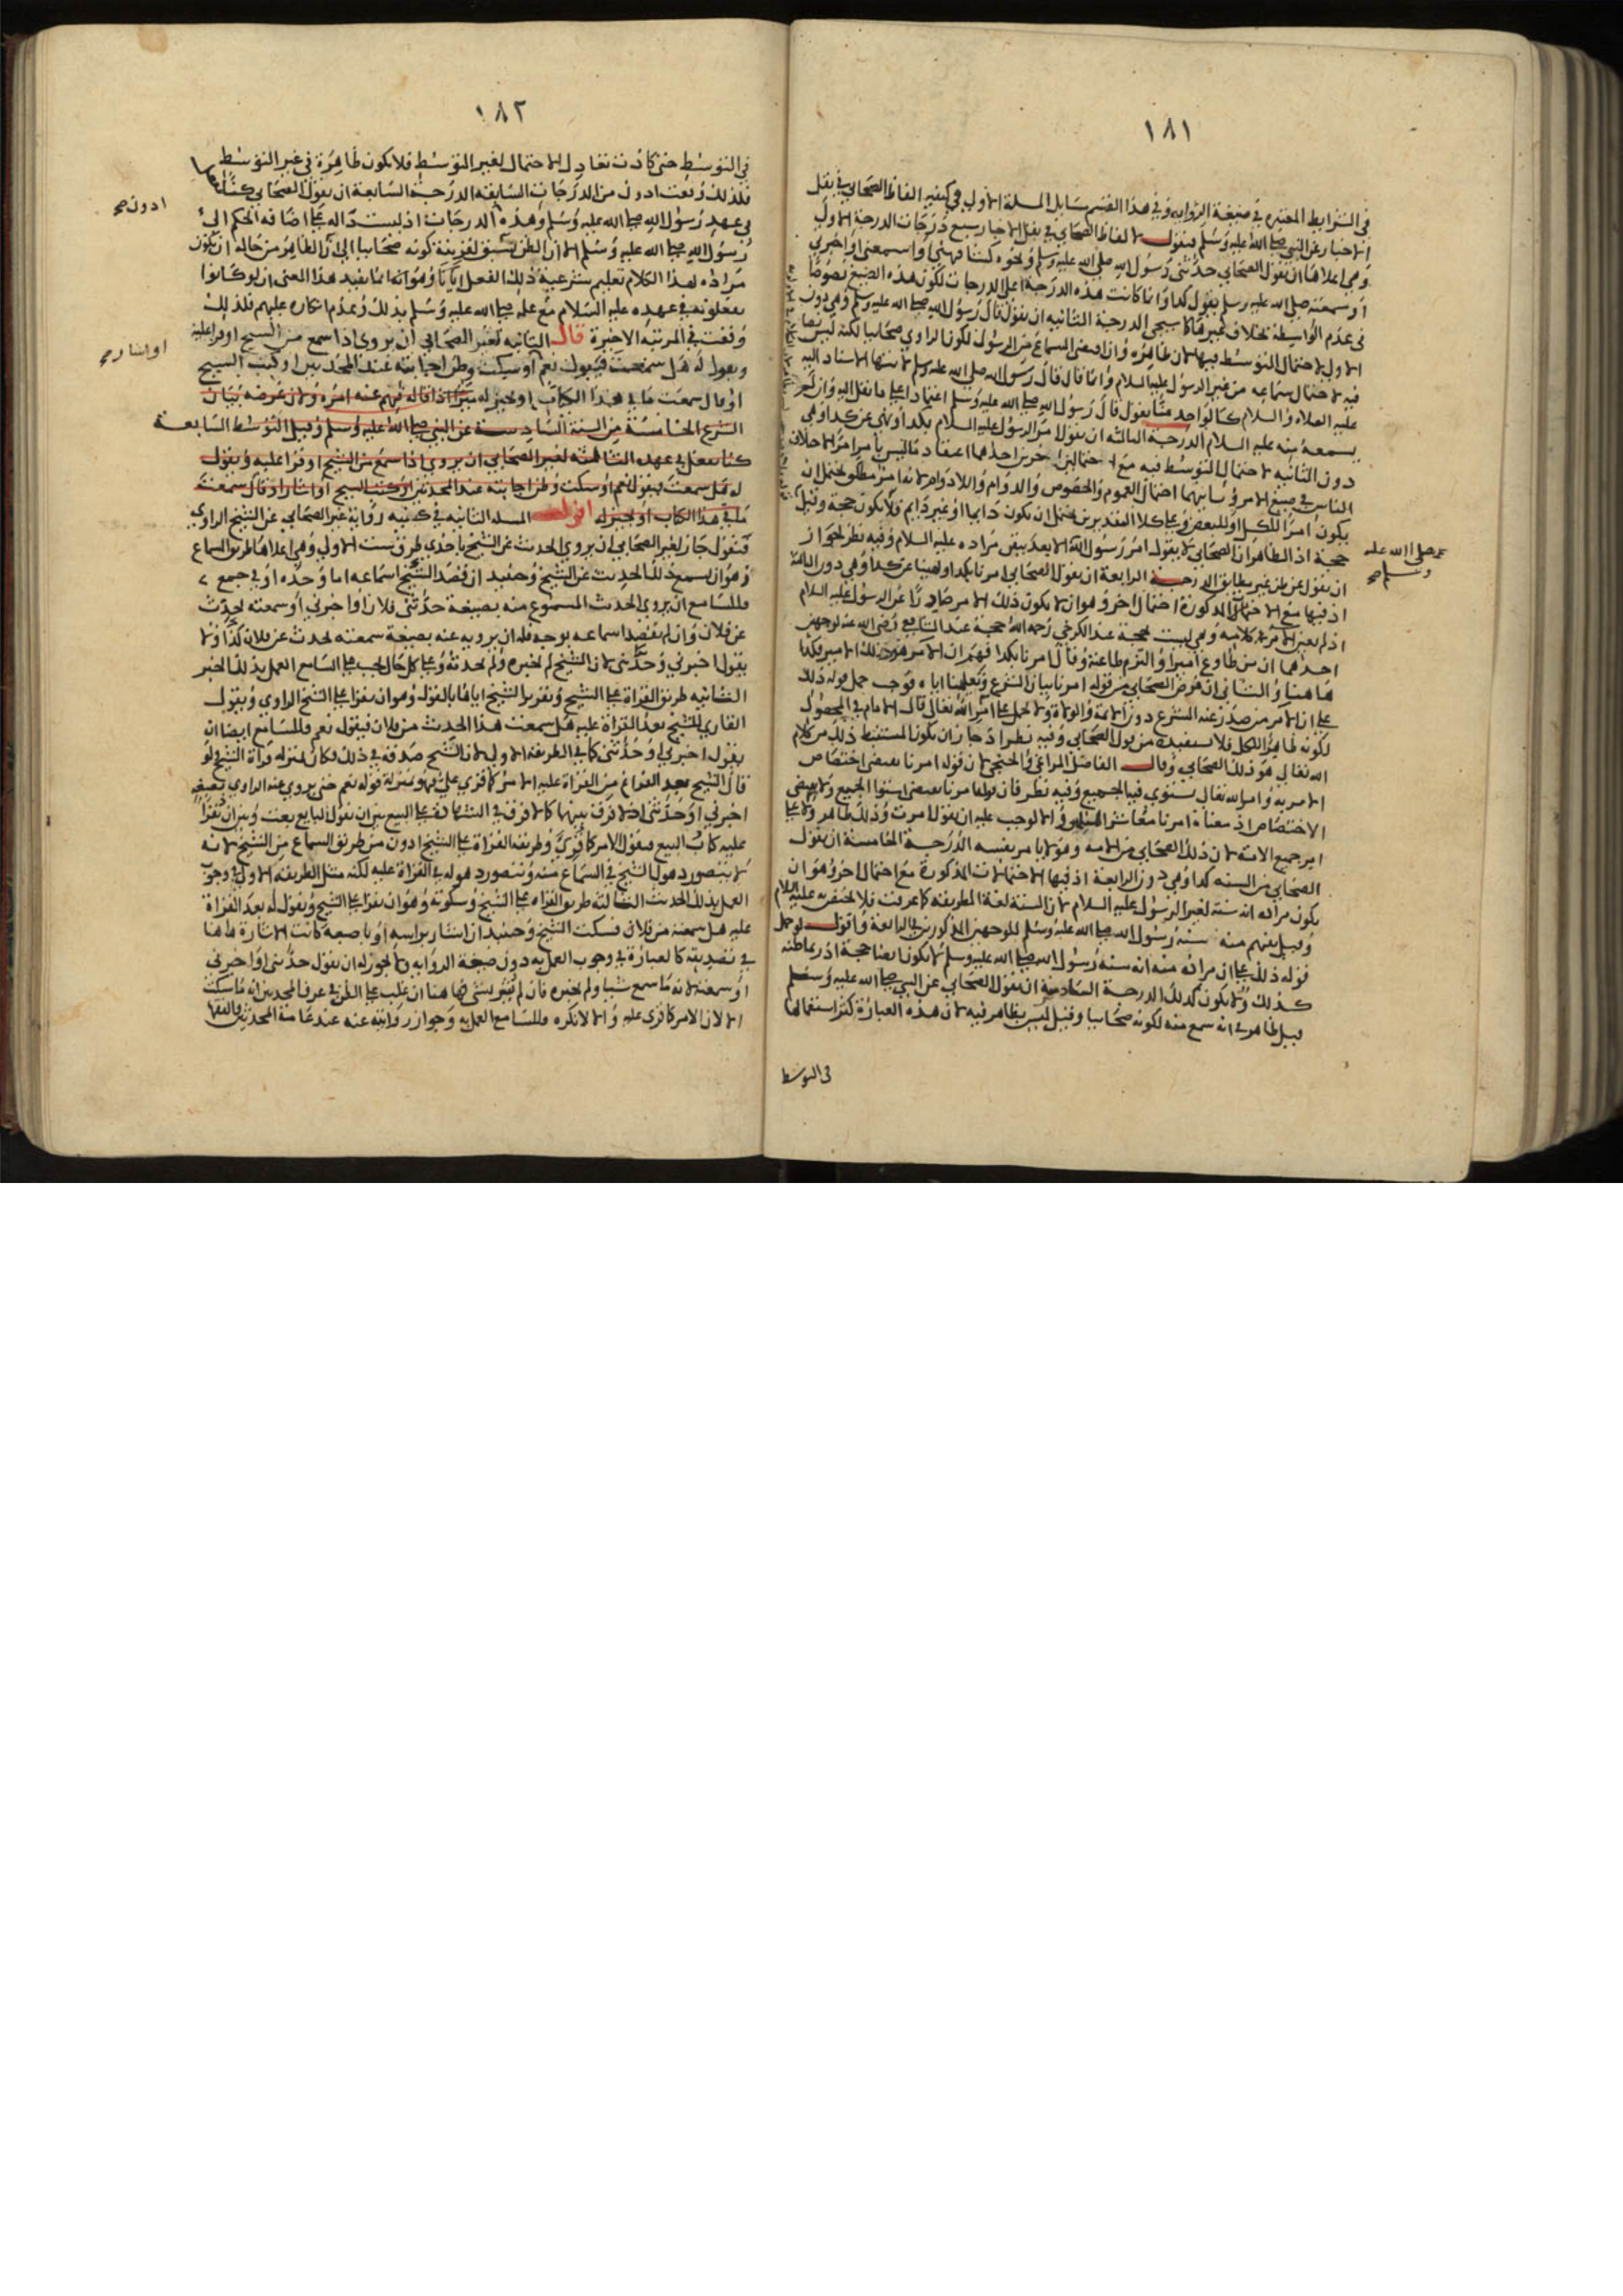 ١٨١
في الشرايط المعتبرة في صيغة الرواية وفي هذا القسم مسايل المسلة الاولي في كيفية الفاظ الصحابي في نقل
الاخبار عن النبي صلي الله عليه وسلم فنقول لالفاظ الصحابي في نقل الاخبار سبع درجات الدرجة الاولي
وهي اعلاها ان يقول الصحابي حدثني رسول الله صلي الله عليه وسلم ونحوه كشافهني او اسمعني او اخبرني
او سمعته صلي الله عليه وسلم يقول كذا وانما كانت هذه الدرجة اعلا الدرجات لكون هذه الصيغ نصوصا
في عدم الواسطة بخلاف غيرها كما سيجي الدرجة الثانية ان يقول قال رسول الله صلي الله عليه وسلم وهي دون
الاولي لاحتمال التوسط فيها لان ظاهره وان اقتضي السماع من الرسول لكون الراوي صحابيا لكنه ليس نصا
فيه لاحتمال سماعه من غير الرسول عليه السلام وانما قال قال رسول الله صلي الله عليه وسلم الاسناد اليه
عليه الصلاة والسلام كالواحد منا يقول قال رسول الله صلي الله عليه وسلم اعتمادا علي ما نقل اليه وان لم
يسمعه منه عليه السلام الدرجة الثالثة ان يقول امر الرسول عليه السلام بكذا او نهي عن كذا وهي
دون الثانية لاحتمال التوسط فيه مع احتمالين اخرين احدهما اعتقاد ما ليس بامر امرا لاختلاف
الناس في صيغ الامر وثانيهما احتمال العموم والخصوص والدوام واللادوام لانه امر مطلق يحتمل ان
يكون امرا للكل او للبعض وعلي كلا التقديرين يحتمل ان يكون دايما او غير دايم فلا يكون حجة وقيل
حجة اذ الظاهر ان الصحابي لا يقول امر رسول الله الا بعد تيقن مراده عليه السلام وفيه نظر لجواز
ان يقول عن ظن غير مطابق الدرجة الرابعة ان يقول الصحابي امرنا بكذا او نهينا عن كذا وهي دون الثالثة
اذ فيها مع الاحتمالات المذكورة احتمال اخر وهو ان لا يكون ذلك الامر صادرا عن الرسول عليه السلام
اذ لم يعين الامر في كلامه وهي ليست بحجة عند الكرخي رحمه الله حجة عند الشافعي رضي الله عنه لوجهين
احدهما ان من طاوع اميرا والتزم طاعته وقال امرنا بكذا فهم ان الامر هو ذلك الامير فكذا
هاهنا والثاني ان غرض الصحابي من قوله امرنا بيان الشرع وتعليمنا اياه فوجب حمل قوله ذلك
علي ان الامر من صدر عنه الشرع دون الايمة والولاة ولا يحمل علي امر الله تعالي قال الامام في المحصول
لكونه ظاهرا للكل فلا يستفيده من قول الصحابي وفيه نظر اذ جاز ان يكون المستنبط ذلك من كلام
الله تعالي هو ذلك الصحابي وقال الفاضل المراغي والخنجي لان قوله امرنا يقتضي اختصاص
الامر به وامر الله تعالي يستوي فيه الجميع وفيه نظر فان قولنا امرنا يقتضي استوا الجميع ولا يقتضي
الاختصاص اذ معناه امرنا معاشر المسلمين والا لوجب عليه ان يقول امرت وذلك ظاهر ولا علي
امر جميع الامة لان ذلك الصحابي من الامة وهو لا يامر نفسه الدرجة الخامسة ان يقول
الصحابي من السنة كذا وهي دون الرابعة اذ فيها الاحتمالات المذكورة مع احتمال اخر وهو ان
يكون مراده انه سنة لغير الرسول عليه السلام لان السنة لغة الطريقة كما عرفت فلا تختص به عليه السلام
وقيل يفهم منه سنة رسول الله صلي الله عليه وسلم للوجهين المذكورين في الرابعة واقول لو حمل
قوله ذلك علي ان مراده منه انه سنة رسول الله صلي الله عليه وسلم لا يكون ايضا حجة اذ ربما ظنه
كذلك ولا يكون كذلك الدرجة السادسة ان يقول الصحابي عن النبي صلي الله عليه وسلم
قيل ظاهر في انه سمع منه لكونه صحابيا وقيل ليس بظاهر فيه لان هذه العبارة كثر استعمالها
في التوسط
صلي الله عليه
وسلم صح
١٨٢
في التوسط حتي كادت تعادل الاحتمال لغير التوسط فلا تكون ظاهرة في غير التوسط
فلذلك وقعت ادون من الدرجات السابقة الدرجة السابعة ان يقول الصحابي كنا نفعل
في عهد رسول الله صلي الله عليه وسلم وهذه الدرجات اذ ليست دالة علي اضافة الحكم الي
رسول الله صلي الله عليه وسلم الا ان الظن يسبق لقرينة كونه صحابيا الي ان الظاهر من حاله ان يكون
مراده بهذا الكلام تعليم شرعية ذلك الفعل ايانا وهو انه انما يفيد هذا المعني ان لو كانوا
يفعلونه في عهده عليه السلام مع علمه صلي الله عليه وسلم بذلك وعدم انكاره عليهم فلذلك
وقعت في المرتبة الاخيرة قال الثانية لغير الصحابي ان يروي اذا سمع من الشيخ او قرا عليه
ويقول له هل سمعت فيقول نعم او سكت وظن اجابته عند المحدثين او كتب الشيخ
او قال سمعت ما في هذا الكتاب او يجيز له اذا قاله فهم عنه امره ولان غرضه بيان
الشرع الخامسة من السنة السادسة عن النبي صلي الله عليه وسلم وقيل التوسط السابعة
كنا نفعل في عهده الثانية لغير الصحابي ان يروي اذا سمع من الشيخ او قرا عليه ويقول
له هل سمعت فيقول نعم او سكت وظن اجابته عند المحدثين او كتب الشيخ او اشار او قال سمعت
ما في هذا الكتاب او يجيز له اقول المسلة الثانية في كيفية رواية غير الصحابي عن الشيخ الراوي
فنقول جاز لغير الصحابي ان يروي الحديث عن الشيخ باحدي طرق ست الاولي وهي اعلاها طريق السماع
وهو ان يسمع ذلك الحديث عن الشيخ وحينيذ ان قصد الشيخ اسماعه اما وحده او في جمع
فللسامع ان يروي الحديث المسموع منه بصيغة حدثني فلان او اخبرني او سمعته يحدث
عن فلان وان لم يقصد اسماعه بوجه فله ان يرويه عنه بصيغة سمعته يحدث عن فلان كذا ولا
يقول اخبرني وحدثني لان الشيخ لم يخبره ولم يحدثه وعلي كل حال يجب علي السامع العمل بذلك الخبر
الثانية طريق القراة علي الشيخ وتقرير الشيخ اياها بالقول وهو ان يقرا علي الشيخ الراوي ويقول
القاري للشيخ بعد القراة عليه هل سمعت هذا الحديث من فلان فيقول نعم فللسامع ايضا ان
يقول اخبرني وحدثني كما في الطريقة الاولي لان الشيخ صدقه في ذلك فكان بمنزلة قراة الشيخ ولو
قال الشيخ بعد الفراغ من القراة عليه الامر كما قري علي فهو بمنزلة قوله نعم حتي يروي عنه الراوي بصيغة
اخبرني او حدثني اذ لا فرق بينهما كما لا فرق في الشهادة علي البيع بين ان يقول البايع بعت وبين ان يقرا
عليه كتاب البيع فيقول الامر كما قري وطريقة القراة علي الشيخ ادون من طريق السماع من الشيخ لانه
لا يتصور ذهول الشيخ في السماع منه ويتصور ذهوله في القراة عليه لكنه مثل الطريقة الاولي في وجوب
العمل بذلك الحديث الثالثة طريق القراة علي الشيخ وسكوته وهو ان يقرا علي الشيخ ويقول له بعد القراة
عليه هل سمعته من فلان فسكت الشيخ وحينيذ ان اشار براسه او باصبعه كانت الاشارة هاهنا
في تصديقه كالعبارة في وجوب العمل به دون صيغة الرواية ولا يجوز له ان يقول حدثني او اخبرني
او سمعته لانه ما سمع شيا ولم يخبره فان لم يشر بشي فهاهنا ان غلب علي الظن في عرف المحدثين انه ما سكت
الا لان الامر كما قري عليه والا لانكره فللسامع العمل به وجواز روايته عنه عند عامة المحدثين والفقها
ادون صح
او اشار صح